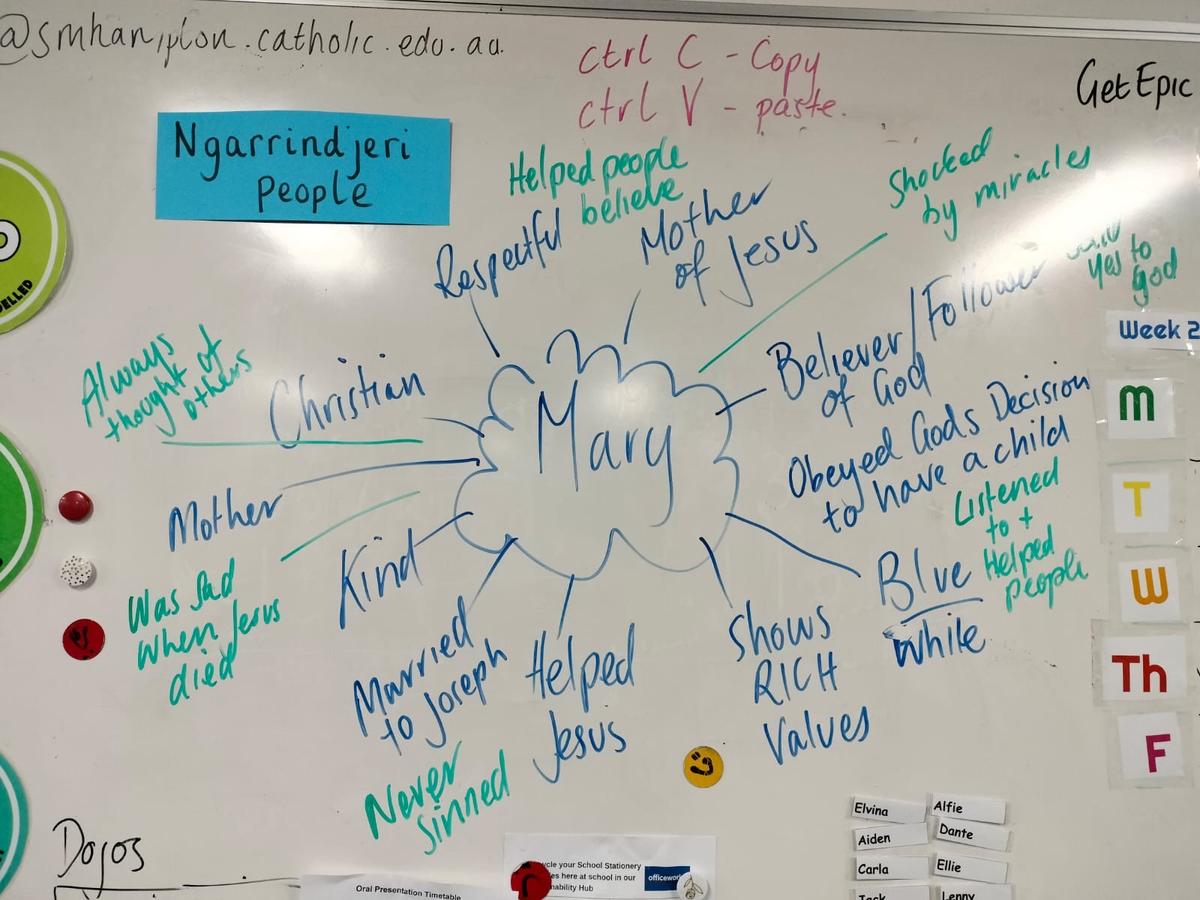 @smhampton.catholic.edu.au
ctrl C - Copy
ctrl V - paste.
Get Epic
Ngarrindjeri
People
Helped people
believe
Respectful
Mother
of Jesus
Shocked
by miracles
yes to
god
Believer/Follower
of God
Week 2
Always
thought of
others
Christian
Mary
Obeyed Gods Decision
to have a child
Listened
to +
Helped
people
Mother
Kind
Blue
White
Was sad
when Jesus
died
Married
to Joseph
Helped
Jesus
Shows
RICH
Values
Never
Sinned
M
T
W
Th
F
Dojos
Elvina
Alfie
Aiden
Dante
Carla
Ellie
Lenny
your School Stationery
here at school in our
Hub
Oral Presentation Timetable